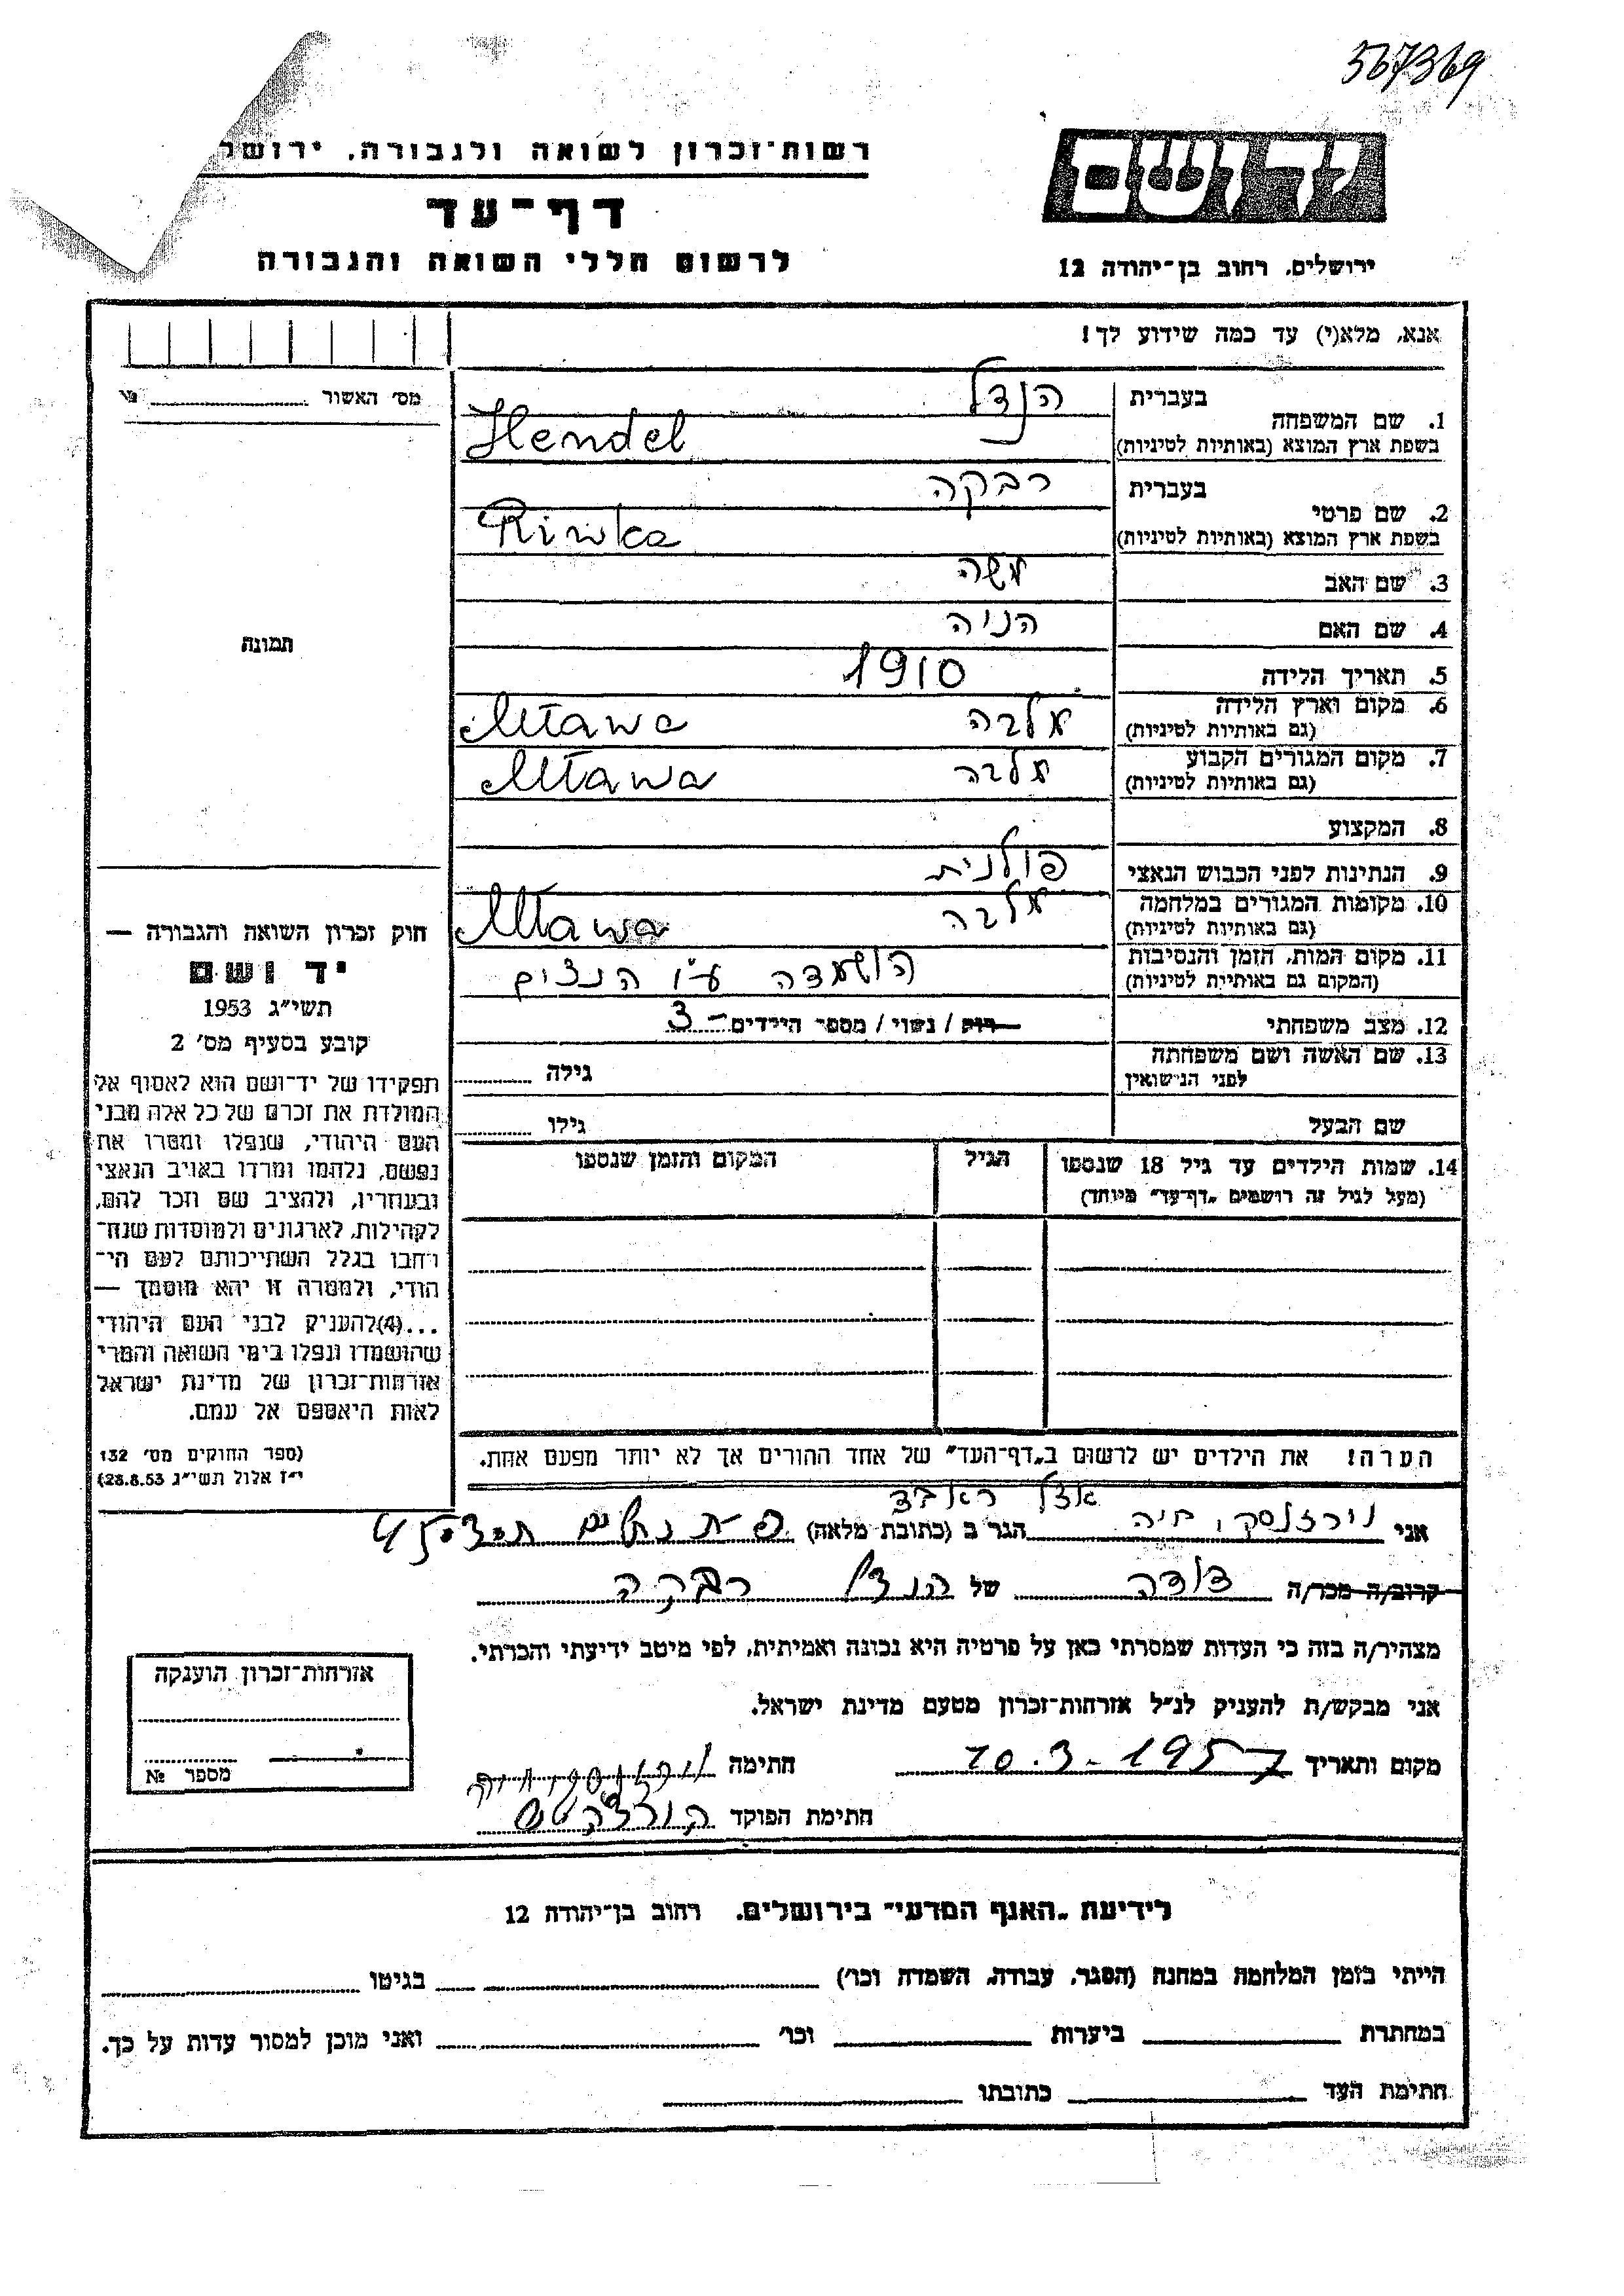 567369
רשות־זכרון לשואה ולגבורה, ירושל
יד ושם
דף־עד
לרשום חללי השואה והגבורה
ירושלים, רחוב בן־יהודה 12
אנא, מלא(י) עד כמה שידוע לך!
מס' האשור
1. שם המשפחה
בעברית
הנדל
בשפת ארץ המוצא (באותיות לטיניות)
Hendel
2. שם פרטי
בעברית
רבקה
בשפת ארץ המוצא (באותיות לטיניות)
Riwka
3. שם האב
משה
4. שם האם
הניה
5. תאריך הלידה
1910
6. מקום וארץ הלידה
(גם באותיות לטיניות)
מלבה Mława
7. מקום המגורים הקבוע
(גם באותיות לטיניות)
מלבה Mława
8. המקצוע
9. הנתינות לפני הכבוש הנאצי
פולנית
10. מקומות המגורים במלחמה
(גם באותיות לטיניות)
מלבה Mława
11. מקום המות, הזמן והנסיבות
(המקום גם באותיות לטיניות)
הושמדה ע"י הנצים
12. מצב משפחתי
רוק / נשוי / מספר הילדים – 3
13. שם האשה ושם משפחתה
לפני הנישואין
גילה
שם הבעל
גילו
14. שמות הילדים עד גיל 18 שנספו
(מעל לגיל זה רושמים „דף־עד" מיוחד)
הגיל
המקום והזמן שנספו
הערה! את הילדים יש לרשום ב„דף־העד" של אחד ההורים אך לא יותר מפעם אחת.
תמונה
חוק זכרון השואה והגבורה —
יד ושם
תשי"ג 1953
קובע בסעיף מס' 2
תפקידו של יד־ושם הוא לאסוף אל
המולדת את זכרם של כל אלה מבני
העם היהודי, שנפלו ומסרו את
נפשם, נלחמו ומרדו באויב הנאצי
ובעוזריו, ולהציב שם וזכר להם,
לקהילות, לארגונים ולמוסדות שנח־
רחבו בגלל השתייכותם לעם הי־
הודי, ולמטרה זו יהא מוסמך —
...(4)להעניק לבני העם היהודי
שהושמדו ונפלו בימי השואה והמרי
אזרחות־זכרון של מדינת ישראל
לאות היאספם אל עמם.
(ספר החוקים מס' 132
י"ז אלול תשי"ג 28.8.53)
אצל
אני חיה הגר ב (כתובת מלאה)
קרוב/ה מכר/ה דודה של הנדל רבקה
מצהיר/ה בזה כי העדות שמסרתי כאן על פרטיה היא נכונה ואמיתית, לפי מיטב ידיעתי והכרתי.
אני מבקש/ת להעניק לנ"ל אזרחות־זכרון מטעם מדינת ישראל.
מקום ותאריך 10.3-1957 חתימה
חתימת הפוקד
אזרחות־זכרון הוענקה
מספר №
לידיעת „האגף המדעי" בירושלים, רחוב בן־יהודה 12
הייתי בזמן המלחמה במחנה (הסגר, עבודה, השמדה וכו') בגיטו
במחתרת ביערות וכו' ואני מוכן למסור עדות על כך.
חתימת העד כתובתו